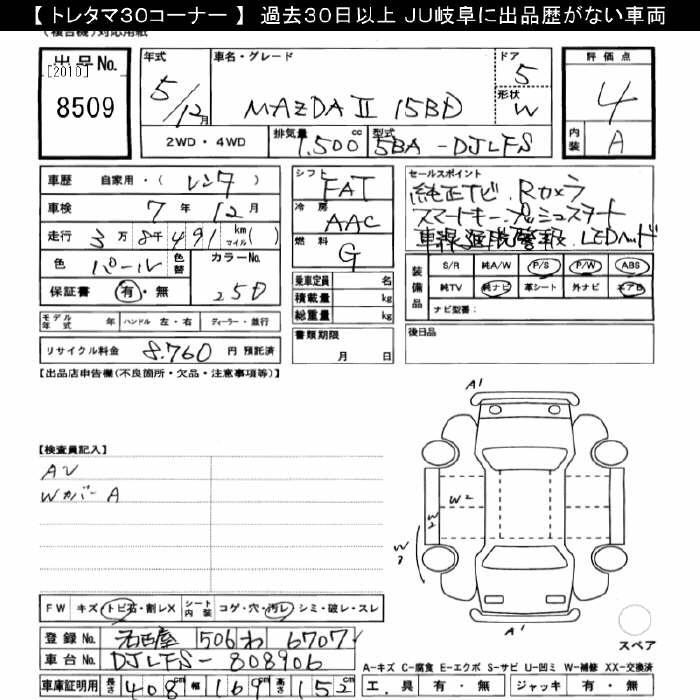 【 トレタマ30コーナー 】 過去30日以上 JU岐阜に出品歴がない車両
(複合機)対応用紙
出品No.
[2010]
8509
年式
5/12月
車名・グレード
MAZDA II 15BD
ドア
5
形状
W
評価点
4
内装
A
2WD・4WD
排気量
1,500cc
型式
5BA-DJLFS
車歴 自家用・( レンタ )
車検 7年12月
走行 3万8千491 km マイル( )
色 パール 色替
カラーNo.
25D
保証書 有・無
シフト
FAT
冷房
AAC
燃料
G
セールスポイント
純正ナビ Rカメラ
スマートキー プッシュスタート
車線逸脱警報 LEDヘッド
乗車定員 名
積載量 kg
総重量 kg
装備品
S/R 純A/W P/S P/W ABS
純TV 純ナビ 革シート 外ナビ エアB
ナビ型番:
モデル年式 年 ハンドル 左・右 ディーラー・並行
書類期限
月 日
後日品
リサイクル料金 8,760 円 預託済
【出品店申告欄(不良箇所・欠品・注意事項等)】
A1
【検査員記入】
AU
Wカバー A
W2
W2
W3
A1
FW キズ・トビ石・割レX シート内装 コゲ・穴・汚レ・シミ・破レ・スレ
スペア
登録No. 名古屋 506 わ 6707
車台No. DJLFS-808906
A-キズ C-腐食 E-エクボ S-サビ U-凹ミ W-補修 XX-交換済
車庫証明用 長さ 408cm 幅 169cm 高さ 152cm
工具 有・無 ジャッキ 有・無